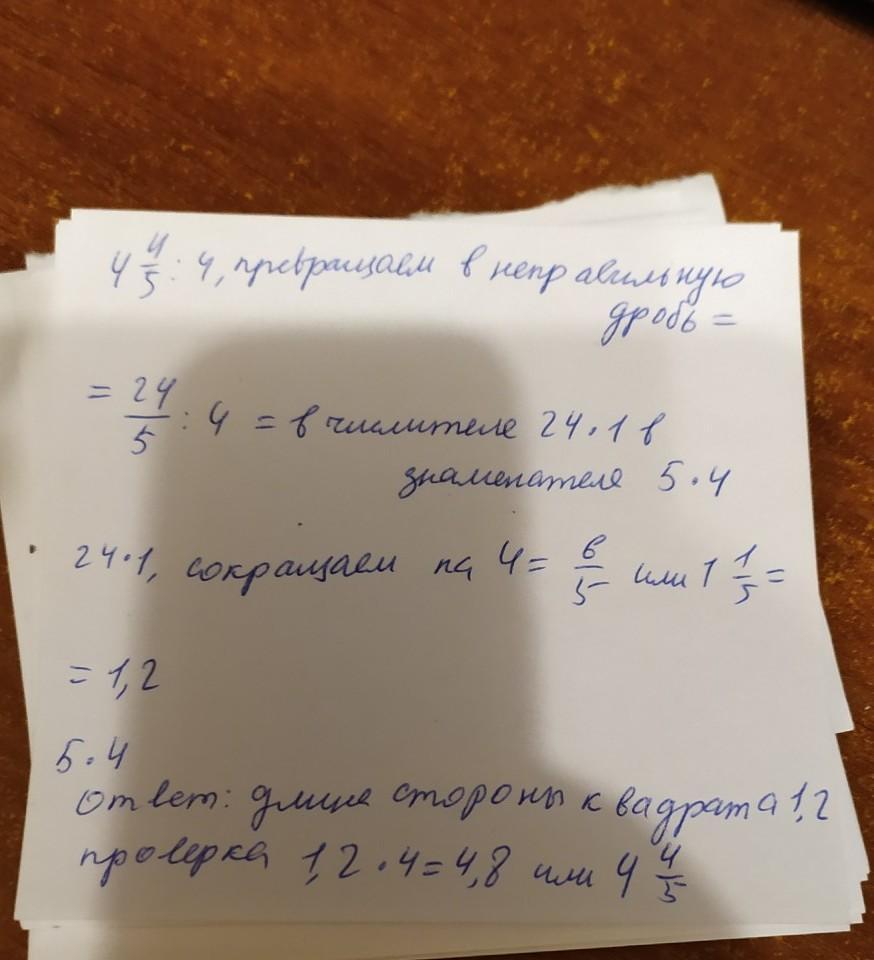 4 4/5 : 4, превращаем в неправильную
дробь =
= 24/5 : 4 = в числителе 24·1 в
знаменателе 5·4
24·1, сокращаем на 4 = 6/5 или 1 1/5 =
= 1,2
5·4
Ответ: длина стороны квадрата 1,2
проверка 1,2·4=4,8 или 4 4/5